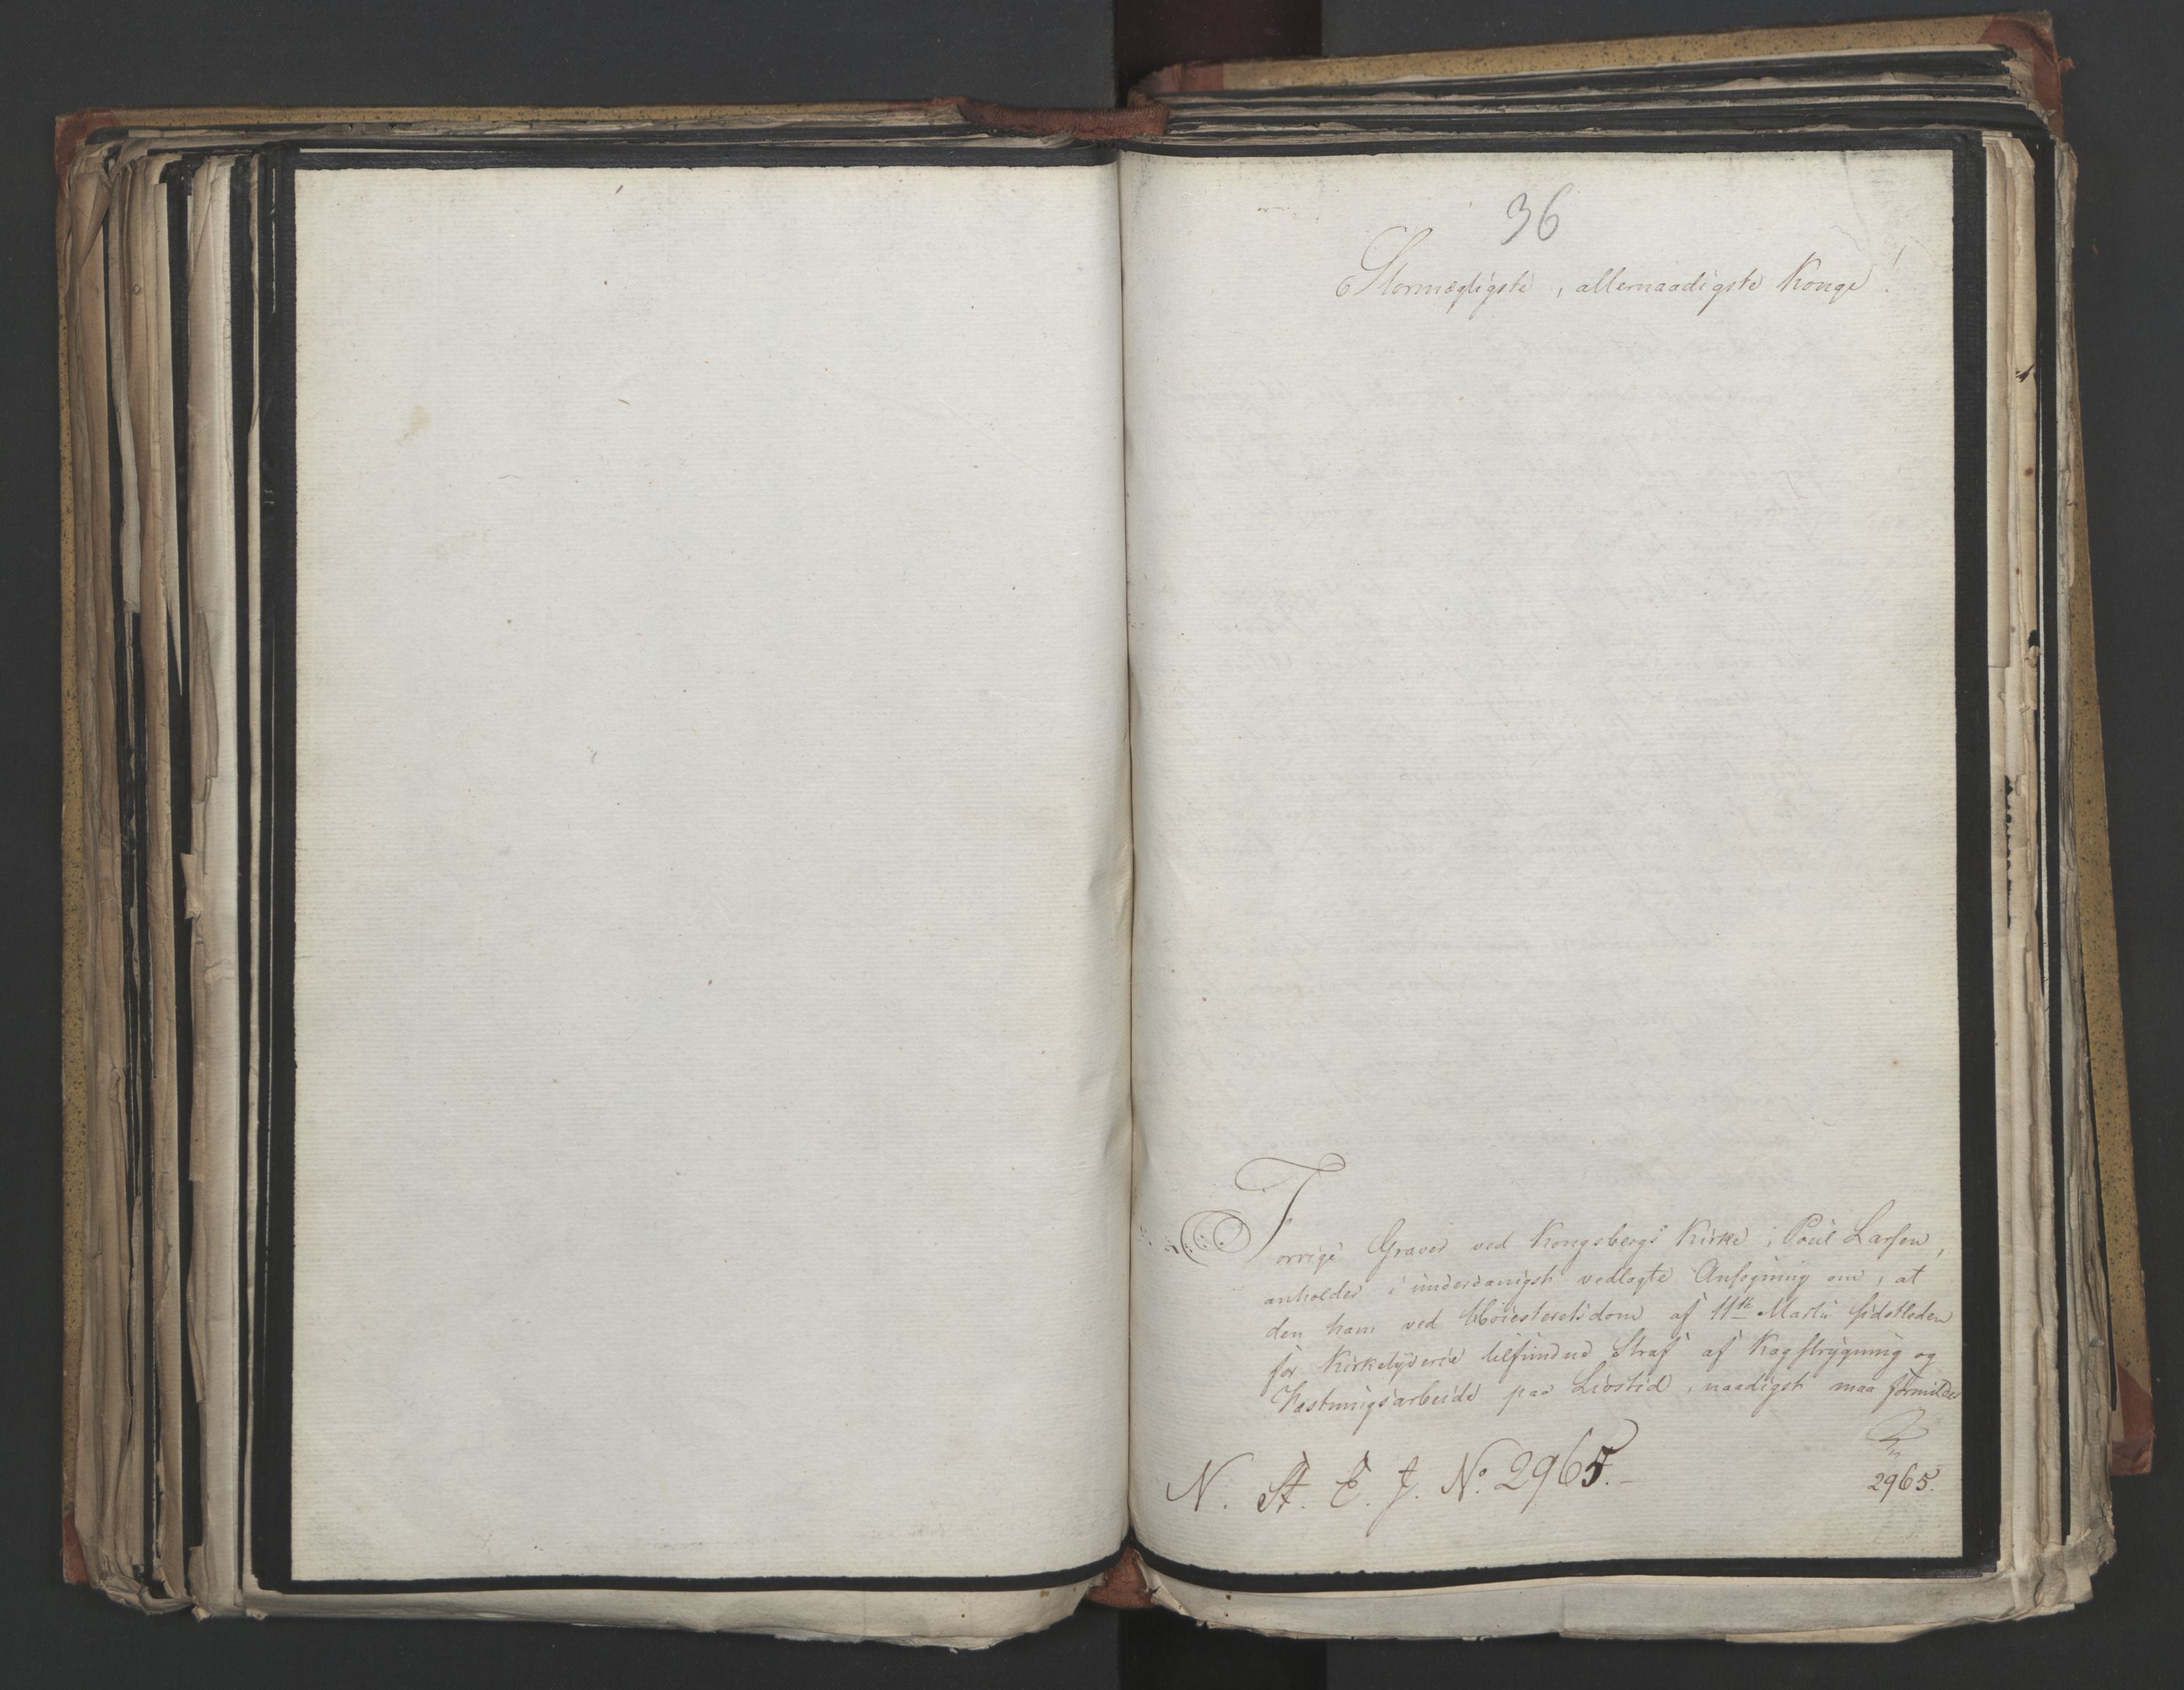 36
Stormægtigste, allernaadigste Konge!
Forrige Graver ved Kongsbergs Kirke, Poül Larsen,
anholder i underdanigst vedlagte Ansøgning om, at
den ham ved Høiesteretsdom af 11te Martii sidstleden
for Kirketyverie tilfundne Straf af Kagstrygning og
Fæstningsarbeide paa Livstid, naadigst maa formildes
N. St. E. J. No. 2965.
2965.